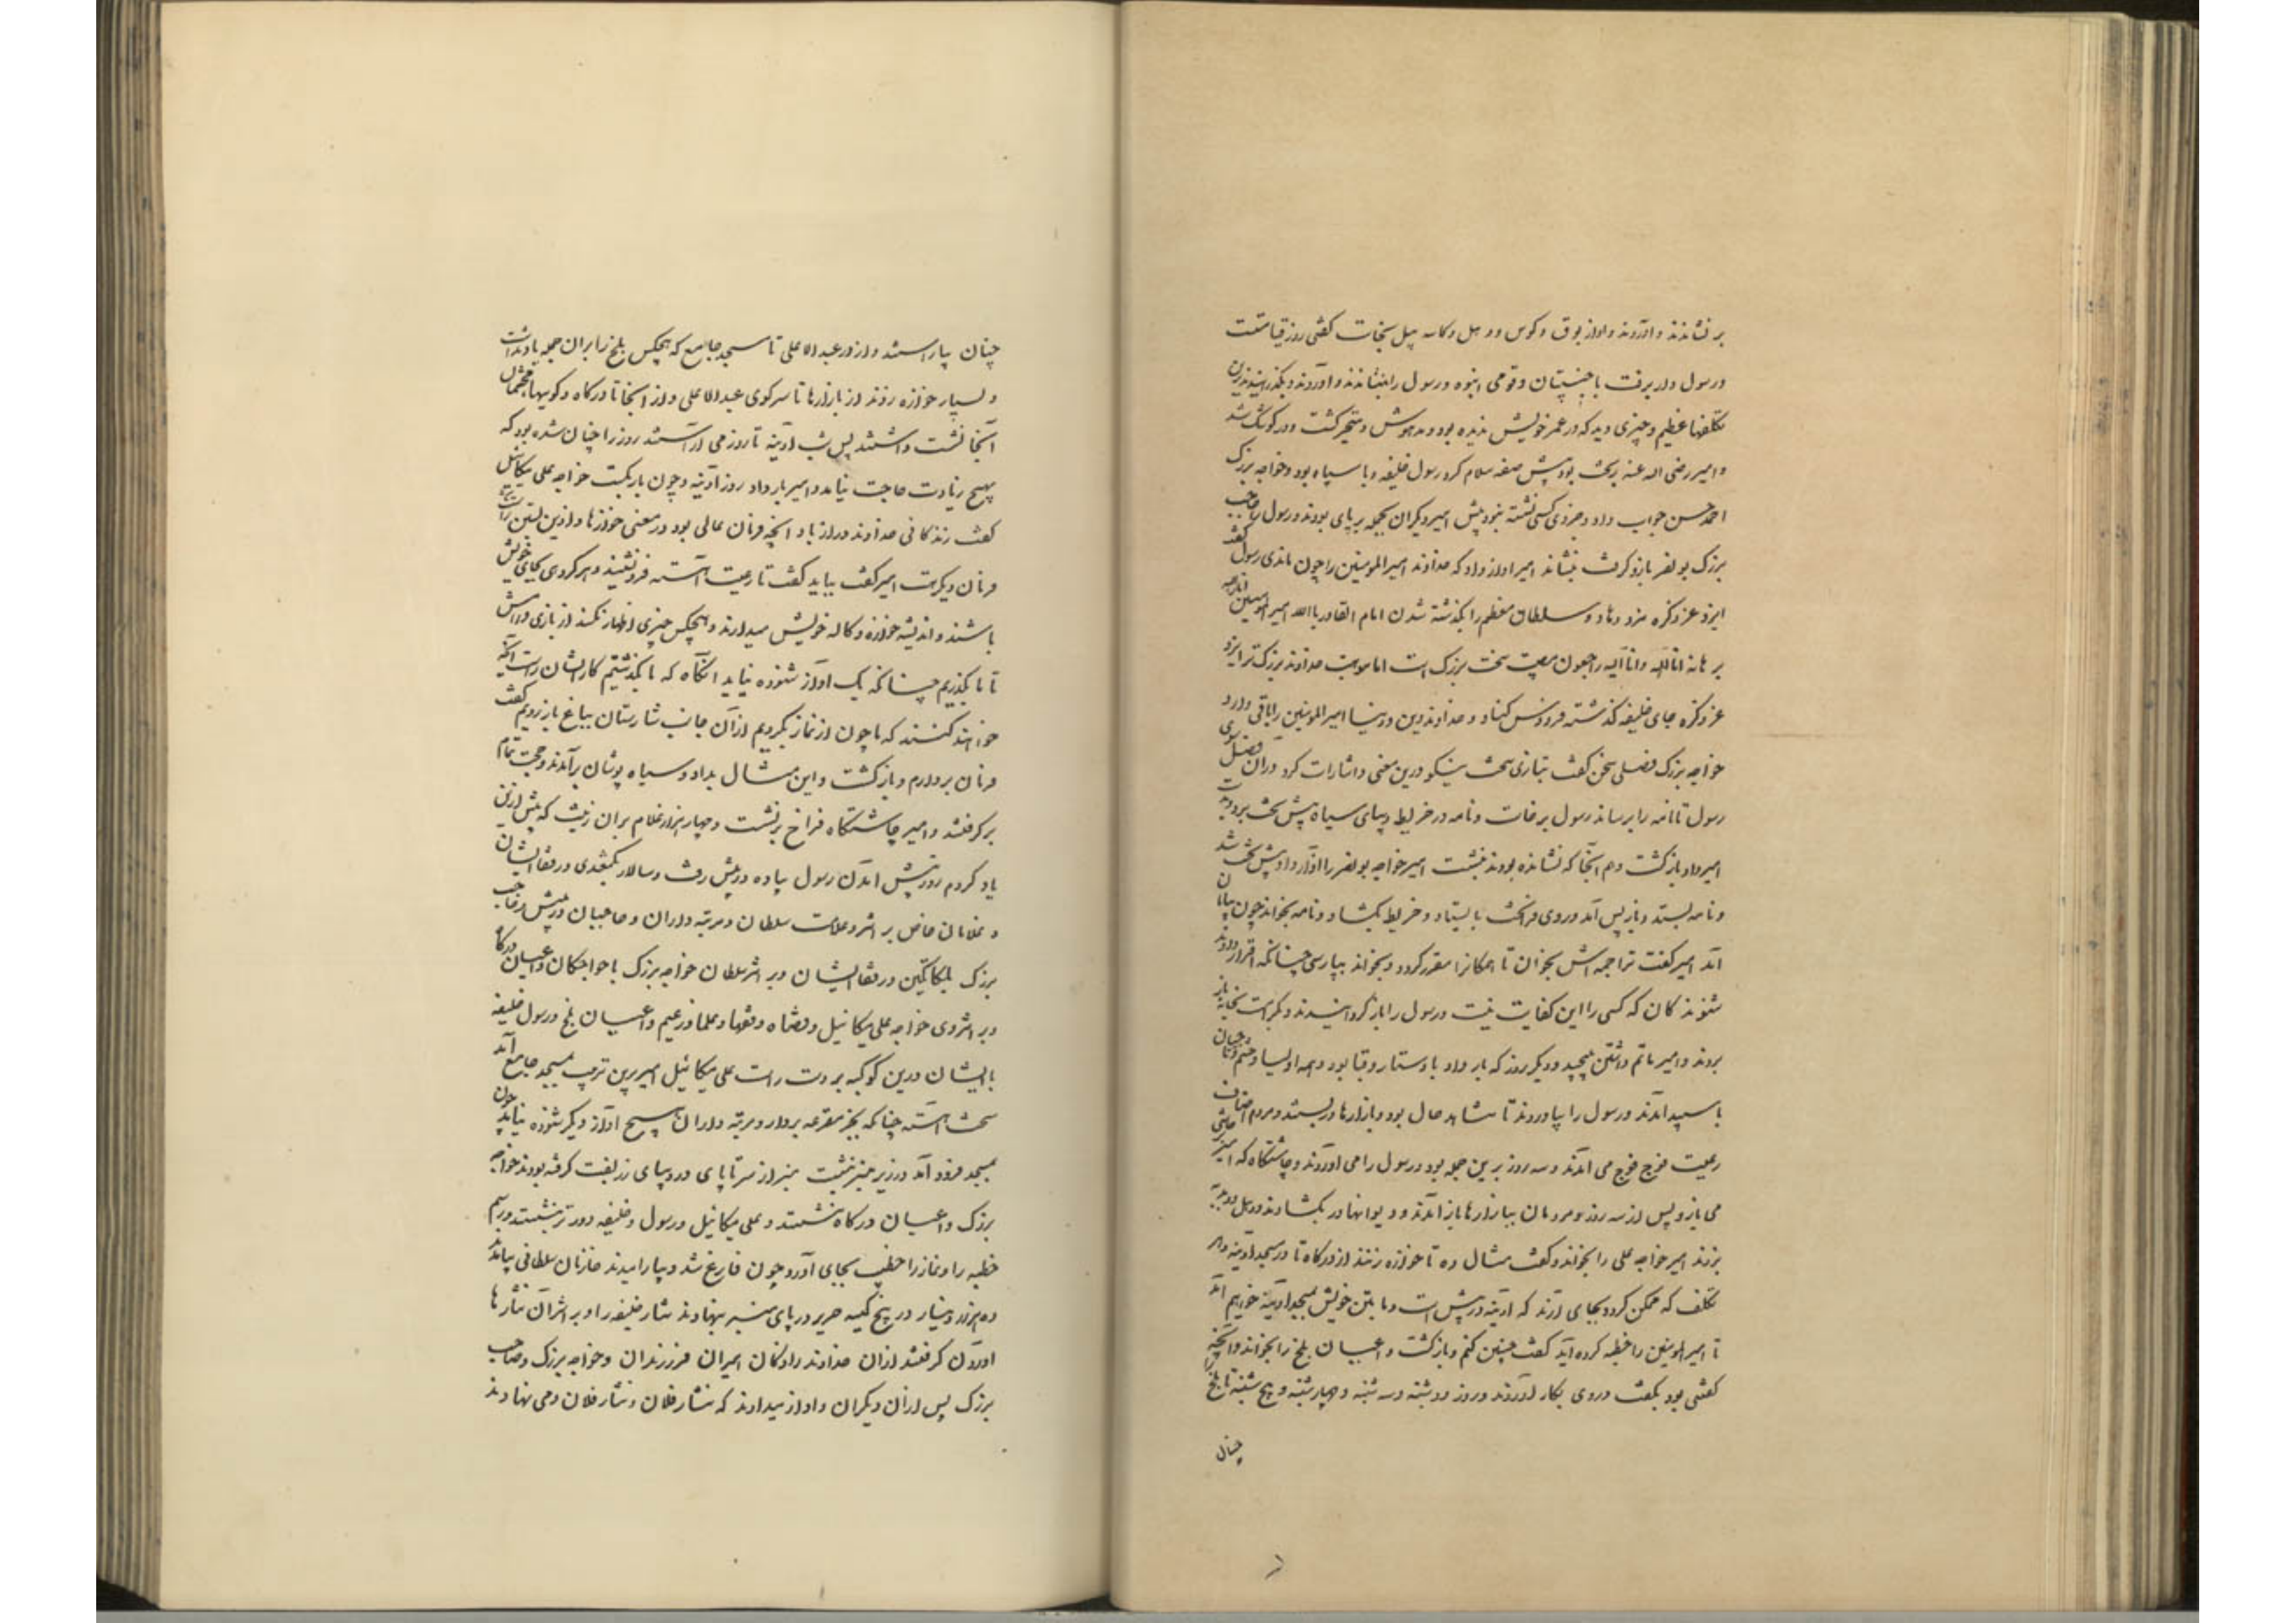 بر نشاندند و آوردند و آواز بوق و کوس و دهل و کاسه پیل بخاست گفتی روز قیامتست
و رسول دار برفت با جنیبتیان و قومی انبوه و رسول را بنشاندند و آوردند و بگذرانیدند برین
تکلفها عظیم و چیزی دید که در عمر خویش ندیده بود و مدهوش و متحیر گشت و در کوشک شد
و امیر رضی الله عنه بر تخت بود پیش صفه سلام کرد رسول خلیفه و با سیاه بود و خواجه بزرگ
احمد حسن جواب داد و جز وی کسی نشسته نبود پیش امیر و دیگران بجمله بر پای بودند و رسول را حاجب
بزرگ بو نصر بازو گرفت بنشاند امیر آواز داد که خداوند امیر المومنین را چون ماندی رسول گفت
ایزد عز ذکره مزد دهاد و سلطان معظم را بگذشته شدن امام القادر باالله امیر المومنین انار الله
برهانه انا لله و انا الیه راجعون مصیبت سخت بزرگ است اما موهبت خداوند بزرگ تر ایزد
عز ذکره جای خلیفه گذشته فردوس کناد و خداوند دین و دنیا امیر المومنین را باقی دارد
خواجه بزرگ فصلی سخن گفت بتازی سخت نیکو درین معنی و اشارات کرد در آن فصل سوی
رسول تا نامه را برساند رسول برخاست و نامه در خریطه دیبای سیاه پیش تخت برد و بدست
امیر داد و بازگشت و هم آنجا که نشانده بودند بنشست امیر خواجه بونصر را آواز داد پیش تخت شد
و نامه بستد و باز پس آمد و روی فرا تخت بایستاد و خریطه بگشاد و نامه بخواند چون بپایان
آمد امیر گفت ترجمه اش بخوان تا همگانرا مقرر گردد و بخواند بپارسی چنانکه اقرار دادند
شنوندگان که کسی را این کفایت نیست و رسول را باز گردانیدند و بکرامت بخانه باز
بردند و امیر ماتم داشتن بسیجید و دیگر روز که بار داد با دستار و قبا بود و همه اولیا و حشم و حاجبان
با سپید آمدند و رسول را بیاوردند تا مشاهد حال بود و بازارها در ببستند و مردم اصناف
رعیت فوج فوج می آمدند و سه روز برین جمله بود و رسول را می آوردند و چاشتگاه که امیر
می باز و پس از سه روز مردمان ببازارها باز آمدند و دیوانها در بگشادند و دهل و دبدبه
بزدند امیر خواجه علی را بخواند و گفت مثال ده تا خوازه زنند از درگاه تا در مسجد آدینه و هر
تکلف که ممکن گردد بجای آرند که آدینه در پیش است و ما بتن خویش بمسجد آدینه خواهیم آمد
تا امیر المومنین را خطبه کرده آید گفت چنین کنم و بازگشت و اعیان بلخ را بخواند و آنچه
گفتنی بود بگفت و روی بکار آوردند و روز دوشنبه و سه شنبه و چهار شنبه و پنج شنبه تا بلخ را
چنان
چنان بیاراستند و از در عبدالاعلی تا مسجد جامع که هیچکس بلخ را بر آن جمله یاد نداشت
و بسیار خوازه زدند از بازارها تا سر کوی عبدالاعلی و از آنجا تا درگاه و کویهای محتشمان
آنجا نشست داشتند پس شب آدینه تا روز می آراستند روز را چنان شده بود که
بهیچ زیادت حاجت نیامد و امیر بار داد روز آدینه و چون بار بگسست خواجه علی میکائیل
گفت زندگانی خداوند دراز باد آنچه فرمان عالی بود در معنی خوازها و آذین بستن راست شد
فرمان دیگرهست امیر گفت بباید گفت تا رعیت آهسته فرو نشیند و هر گروهی بجای خویش
باشند و اندیشه خوازه و کاله خویش میدارند و هیچکس چیزی اظهار نکند از بازی و رامش
تا ما بگذریم چنانکه یک آواز شنوده نیاید آنگاه که ما بگذشتیم کار ایشان راست آنچه
خواهند کنند که ما چون از نماز بگردیم از آن جانب شارستان بباغ باز رویم گفت
فرمان بردارم و بازگشت و این مثال بداد و سیاه پوشان بر آمدند و حجت تمام
بر گرفتند و امیر چاشتگاه فراخ بر نشست و چهار هزار غلام بر آن زینت که پیش ازین
یاد کردم روز پیش آمدن رسول پیاده در پیش رفت و سالار بکتغدی در قفا ایشان
و غلامان خاص بر اثر و علامت سلطان و مرتبه داران و حاجبان در پیش و حاجب
بزرگ بلکاتکین در قفا ایشان و بر اثر سلطان خواجه بزرگ با خواجگان و اعیان درگاه
و بر اثر وی خواجه علی میکائیل و قضاه و فقها و علما و زعیم و اعیان بلخ و رسول خلیفه
با ایشان درین کوکبه بر دست راست علی میکائیل امیر برین ترتیب بمسجد جامع آمد
سخت آهسته چنانکه بجز مقرعه بردارد مرتبه داران هیچ آواز دیگر شنوده نیاید چون
بمسجد فرود آمد در زیر منبر بنشست و منبر از سر تا پای در دیبای زربفت گرفته بودند خواجه
بزرگ و اعیان درگاه بنشستند و علی میکائیل و رسول و خلیفه دورتر بنشستند و رسم
خطبه را و نماز را خطیب بجای آورد چون فارغ شد و بیارامیدند خازنان سلطانی بیامدند
ده هزار دینار در پنج کیسه حریر در پای منبر بنهادند نثار خلیفه را و بر اثر آن نثارها
آوردن گرفتند از آن خداوند زادگان امیران فرزندان و خواجه بزرگ و حاجب
بزرگ پس از آن دیگران و آواز میدادند که نثار فلان و نثار فلان و می نهادند